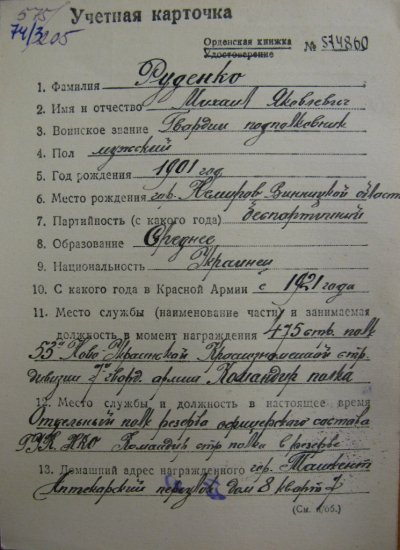 575/
74/3205
Учетная карточка
Орденская книжка
Удостоверение
№ 574860
1. Фамилия Руденко
2. Имя и отчество Михаил Яковлевич
3. Воинское звание Гвардии подполковник
4. Пол мужской
5. Год рождения 1901 год
6. Место рождения гор. Немиров Винницкой области
7. Партийность (с какого года) беспартийный
8. Образование Среднее
9. Национальность Украинец
10. С какого года в Красной Армии с 1921 года
11. Место службы (наименование части) и занимаемая
должность в момент награждения 475 стр. полк
53й Ново Украинской Краснознаменной стр.
дивизии 7 гвард. армии Командир полка
12. Место службы и должность в настоящее время
Отдельный полк резерва офицерского состава
НКО Командир стр полка в резерве
13. Домашний адрес награжденного гор. Ташкент
Аптекарский переулок дом 8 кварт 7
(См. н/об.)